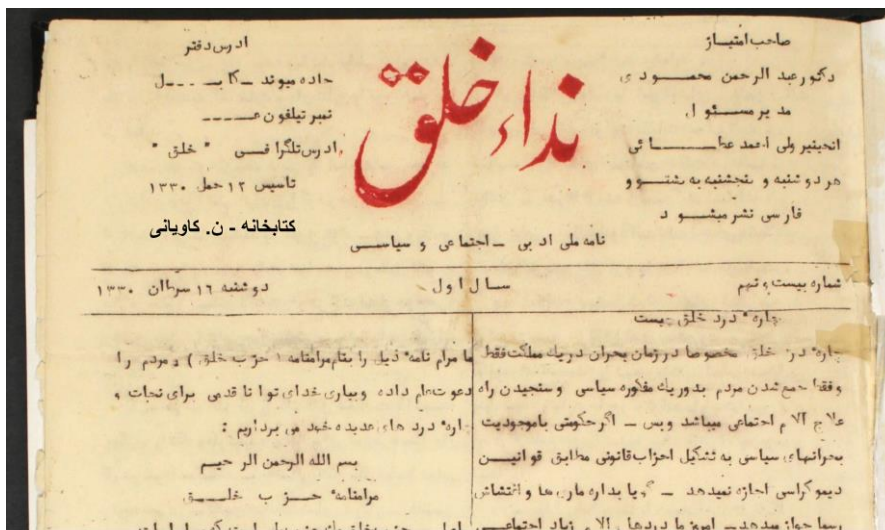 صاحب امتیاز
دکتور عبد الرحمن محمودی
مدیر مسئول
انجینیر ولی احمد عطائی
هر دو شنبه و پنجشنبه به پشتو و
فارسی نشر میشود
نداء خلق
نامه ملی ادبی ـ اجتماعی و سیاسی
ادرس دفتر
جاده میوند ـ کابل
نمبر تیلفون
ادرس تلگرافی " خلق "
تاسیس ۱۲ حمل ۱۳۳۰
کتابخانه - ن. کاویانی
شماره بیست و نهم
سال اول
دوشنبه ۱۶ سرطان ۱۳۳۰
چاره درد خلق چیست
چاره درد خلق مخصوصا در زمان بحران در یك مملکت فقط
و فقط جمع شدن مردم بدور یك مفکوره سیاسی و سنجیدن راه
علاج آلام اجتماعی میباشد وبس ـ اگر حکومتی باموجودیت
بحرانهای سیاسی به تشکیل احزاب قانونی مطابق قوانین
دیموکراسی اجازه نمیدهد ـ گویا بداره ماری ها و اغتشاش
رسما جواز میدهد ـ امروز ما دردها
ما مرام نامه ذیل را بنام مرامنامه ( حزب خلق ) و مردم را
دعوت عام داده وبیاری خدای توانا قدمی برای نجات و
چاره درد های عدیده خود می برداریم :
بسم الله الرحمن الرحیم
مرامنامه حزب خلق